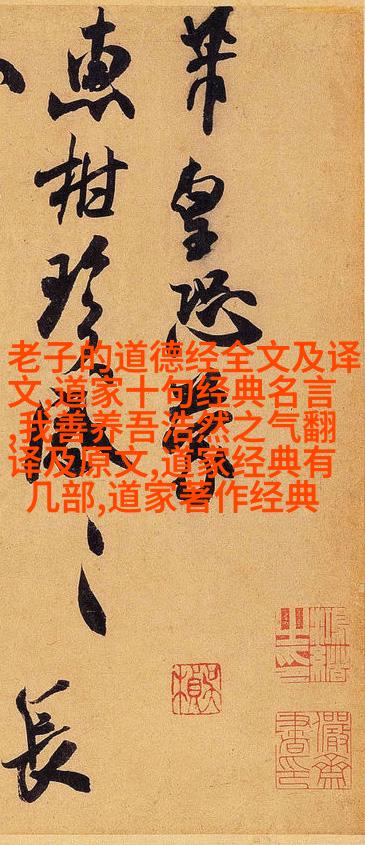 芾皇恐
惠柑珍感
長
老子的道德经全文及译
文,道家十句经典名言
,我善养吾浩然之气翻
译及原文,道家经典有
几部,道家著作经典